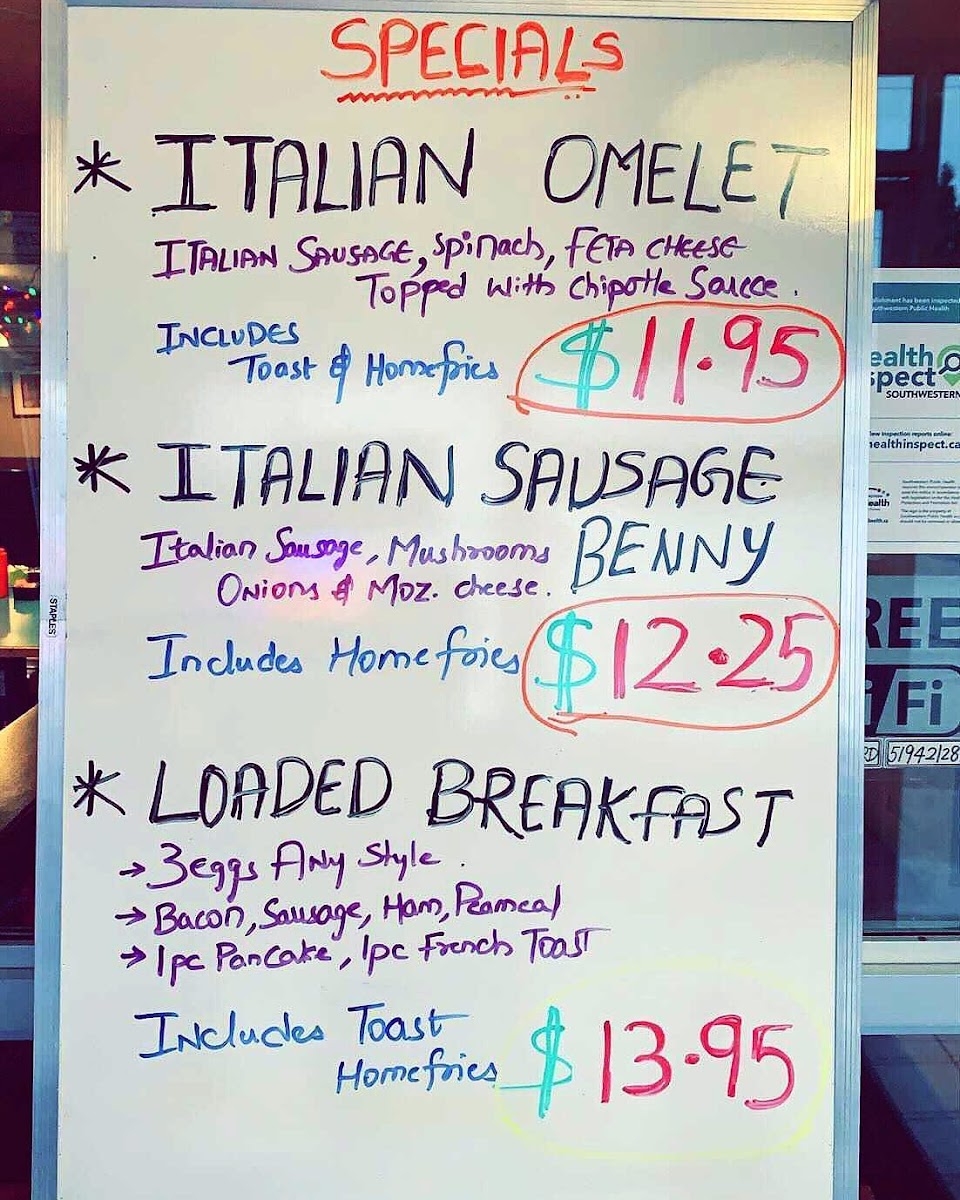 SPECIALS
* ITALIAN OMELET
ITALIAN SAUSAGE, Spinach, FETA CHEESE
Topped with Chipotle Saucce.
INCLUDES
Toast & Homefries
$11.95
* ITALIAN SAUSAGE
BENNY
Italian Sausage, Mushrooms
Onions & Moz. cheese.
Includes Homefries
$12.25
* LOADED BREAKFAST
→ 3eggs Any Style.
→ Bacon, Sausage, Ham, Peameal
→ 1pc Pancake, 1pc French Toast
Includes Toast
Homefries
$13.95
STAPLES
blishment has been inspected
outhwestern Public Health
ealth
spect
SOUTHWESTERN
iew inspection reports online:
healthinspect.ca
REE
i/Fi
51942128